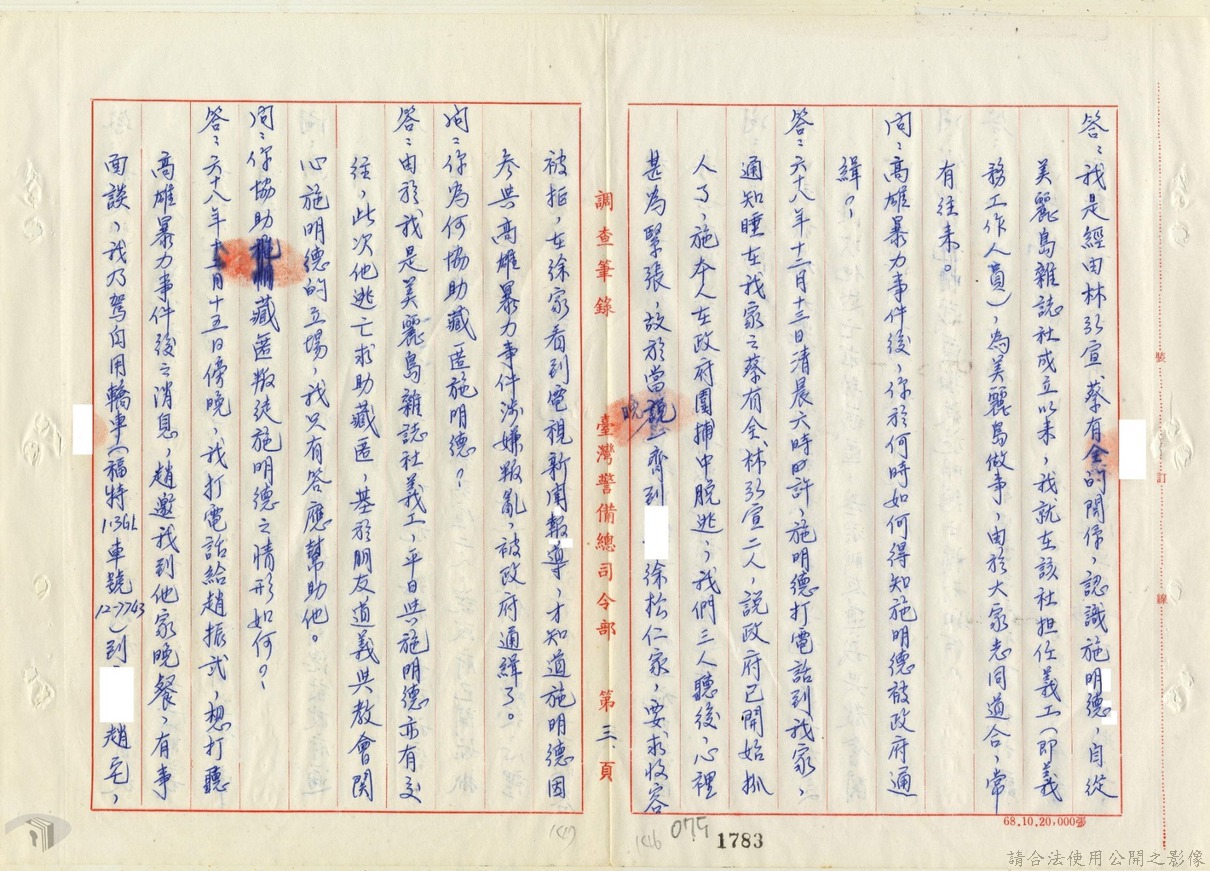 答：我是經由林弘宣、蔡有全的關係，認識施明德，自從
美麗島雜誌社成立以來，我就在該社担任義工（即義
務工作人員），為美麗島做事，由於大家志同道合，常
有往來。
問：高雄暴力事件後，你於何時如何得知施明德被政府通
緝？
答：六十八年十二月十三日清晨六時四許，施明德打電話到我家，
通知睡在我家之蔡有全、林弘宣二人，說政府已開始抓
人了，施本人在政府圍捕中脫逃，我們三人聽後，心裡
甚為緊張，故於當晚一齊到 徐松仁家，要求收容
調查筆錄 臺灣警備總司令部 第三頁
被拒，在徐家看到電視新聞報導，才知道施明德因
參與高雄暴力事件涉嫌叛亂，被政府通緝了。
問：你為何協助藏匿施明德？
答：由於我是美麗島雜誌社義工，平日與施明德亦有交
往，此次他逃亡求助藏匿，基於朋友道義與教會關
心施明德的立場，我只有答應幫助他。
問：你協助藏匿叛徒施明德之情形如何？
答：六十八年十二月十五日傍晚，我打電話給趙振貳，想打聽
高雄暴力事件後之消息，趙邀我到他家晚餐，有事
面談，我乃駕自用轎車（福特1.3GL車號12-7743）到 趙宅，
裝 訂 線
68.10.20,000張
146 075 1783
147
請合法使用公開之影像